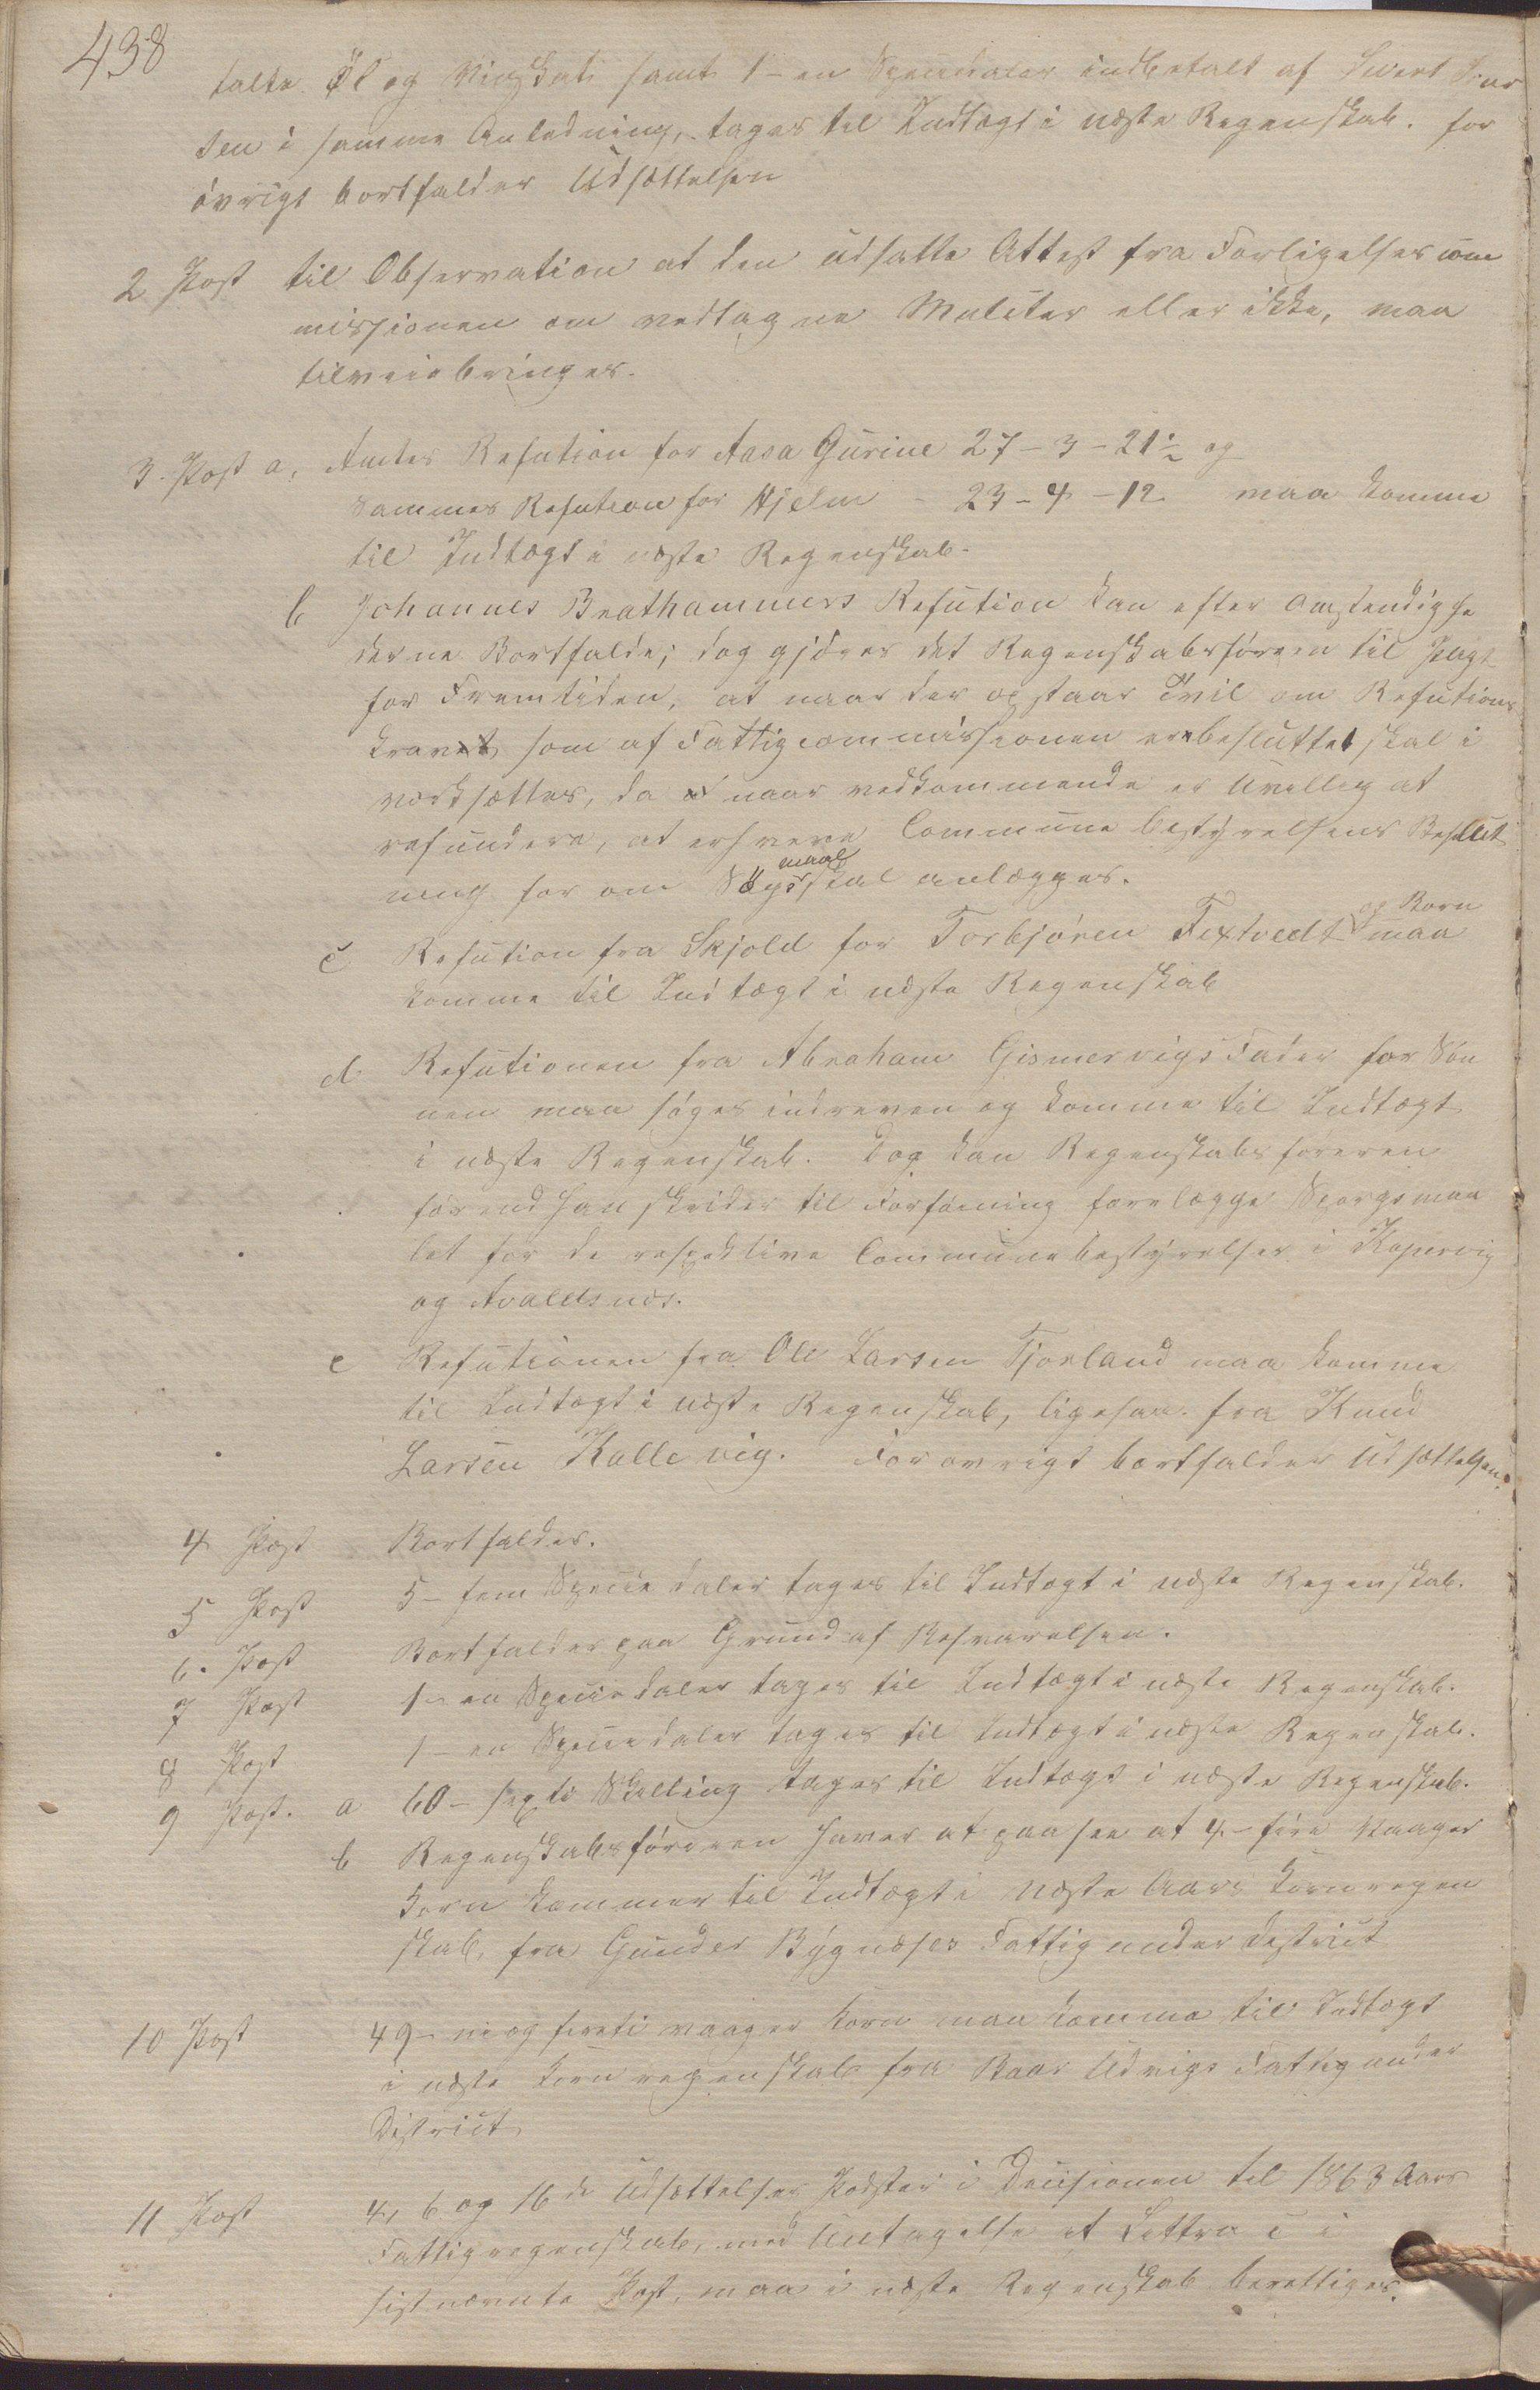 438
talte Öl og Vinskat samt 1 - en Speciedaler indbetalt af Sivert Iver
sen i samme Anledning, tages til Indtægt i næste Regenskab. for
övrigt bortfalder Udsættelsen
2 Post til Observation at den udsatte Attest fra Forligelsescom
missionen om vedtagne Mulcter eller ikke, maa
tilveiebringes.
3. Post a, Amtes Refution for Aasa Gurine 27 - 3 - 21½ og
Sammes Refution for Hjelm - 23 - 4 - 12 maa komme
til Indtægt i næste Regenskab.
b Johannes Brathammers Refution kan efter Omstendighe
derne Bortfalde; dog gjöres det Regenskabsföreren til Pligt
for Fremtiden, at naar der opstaar Tvil om Refutions
kravet, som af Fattigcommissionen er besluttet skal i
værksættes, da naar vedkommende er Uvillig at
refundere, at erhverve Communebestyrelsens Beslut
ning for om Sögsmaal skal anlægges.
c Refution fra Skjold for Torbjören Fextvedt og Born maa
komme til Indtægt i næste Regenskab
d Refutionen fra Abraham Gismervigs Fader for Søn
nen maa söges indreven og komme til Indtægt
i næste Regenskab. Dog kan Regenskabsföreren
förend han skrider til Forföining forelægge Spörgsmaa
let for de respektive Communebestyrelser i Kopervig
og Avaldsnes.
e Refutionen fra Ole Larsen Tjorland maa komme
til Indtægt i næste Regenskab, ligesaa fra Knud
Larsen Kallevig. For ovrigt bortfalder Udsættelsen.
4 Post Bortfalder.
5 Post 5 - fem Speciedaler tages til Indtægt i næste Regenskab.
6. Post Bortfalder paa Grund af Besvarelsen.
7 Post 1 - en Speciedaler tages til Indtægt i næste Regenskab.
8 Post 1 - en Speciedaler tages til Indtægt i næste Regenskab.
9 Post. a 60 - sexti Skilling tages til Indtægt i næste Regenskab.
b Regenskabsföreren haver at paasee at 4 - fire Vaager
Korn kommer til Indtægt i næste Aars Kornregen
skab, fra Gunder Bygnæses Fattigunderdistrict
10 Post 49 - niogfirti vaager Korn maa komme til Indtægt
i næste Kornregenskab fra Baar Udvigs Fattigunder
District
11 Post 4, 6 og 16de Udsættelses Poster i Decisionen til 1863 Aars
Fattigregenskab, med Untagelse af Lettra c i
sistnevnte Post, maa i næste Regenskab berettiges.